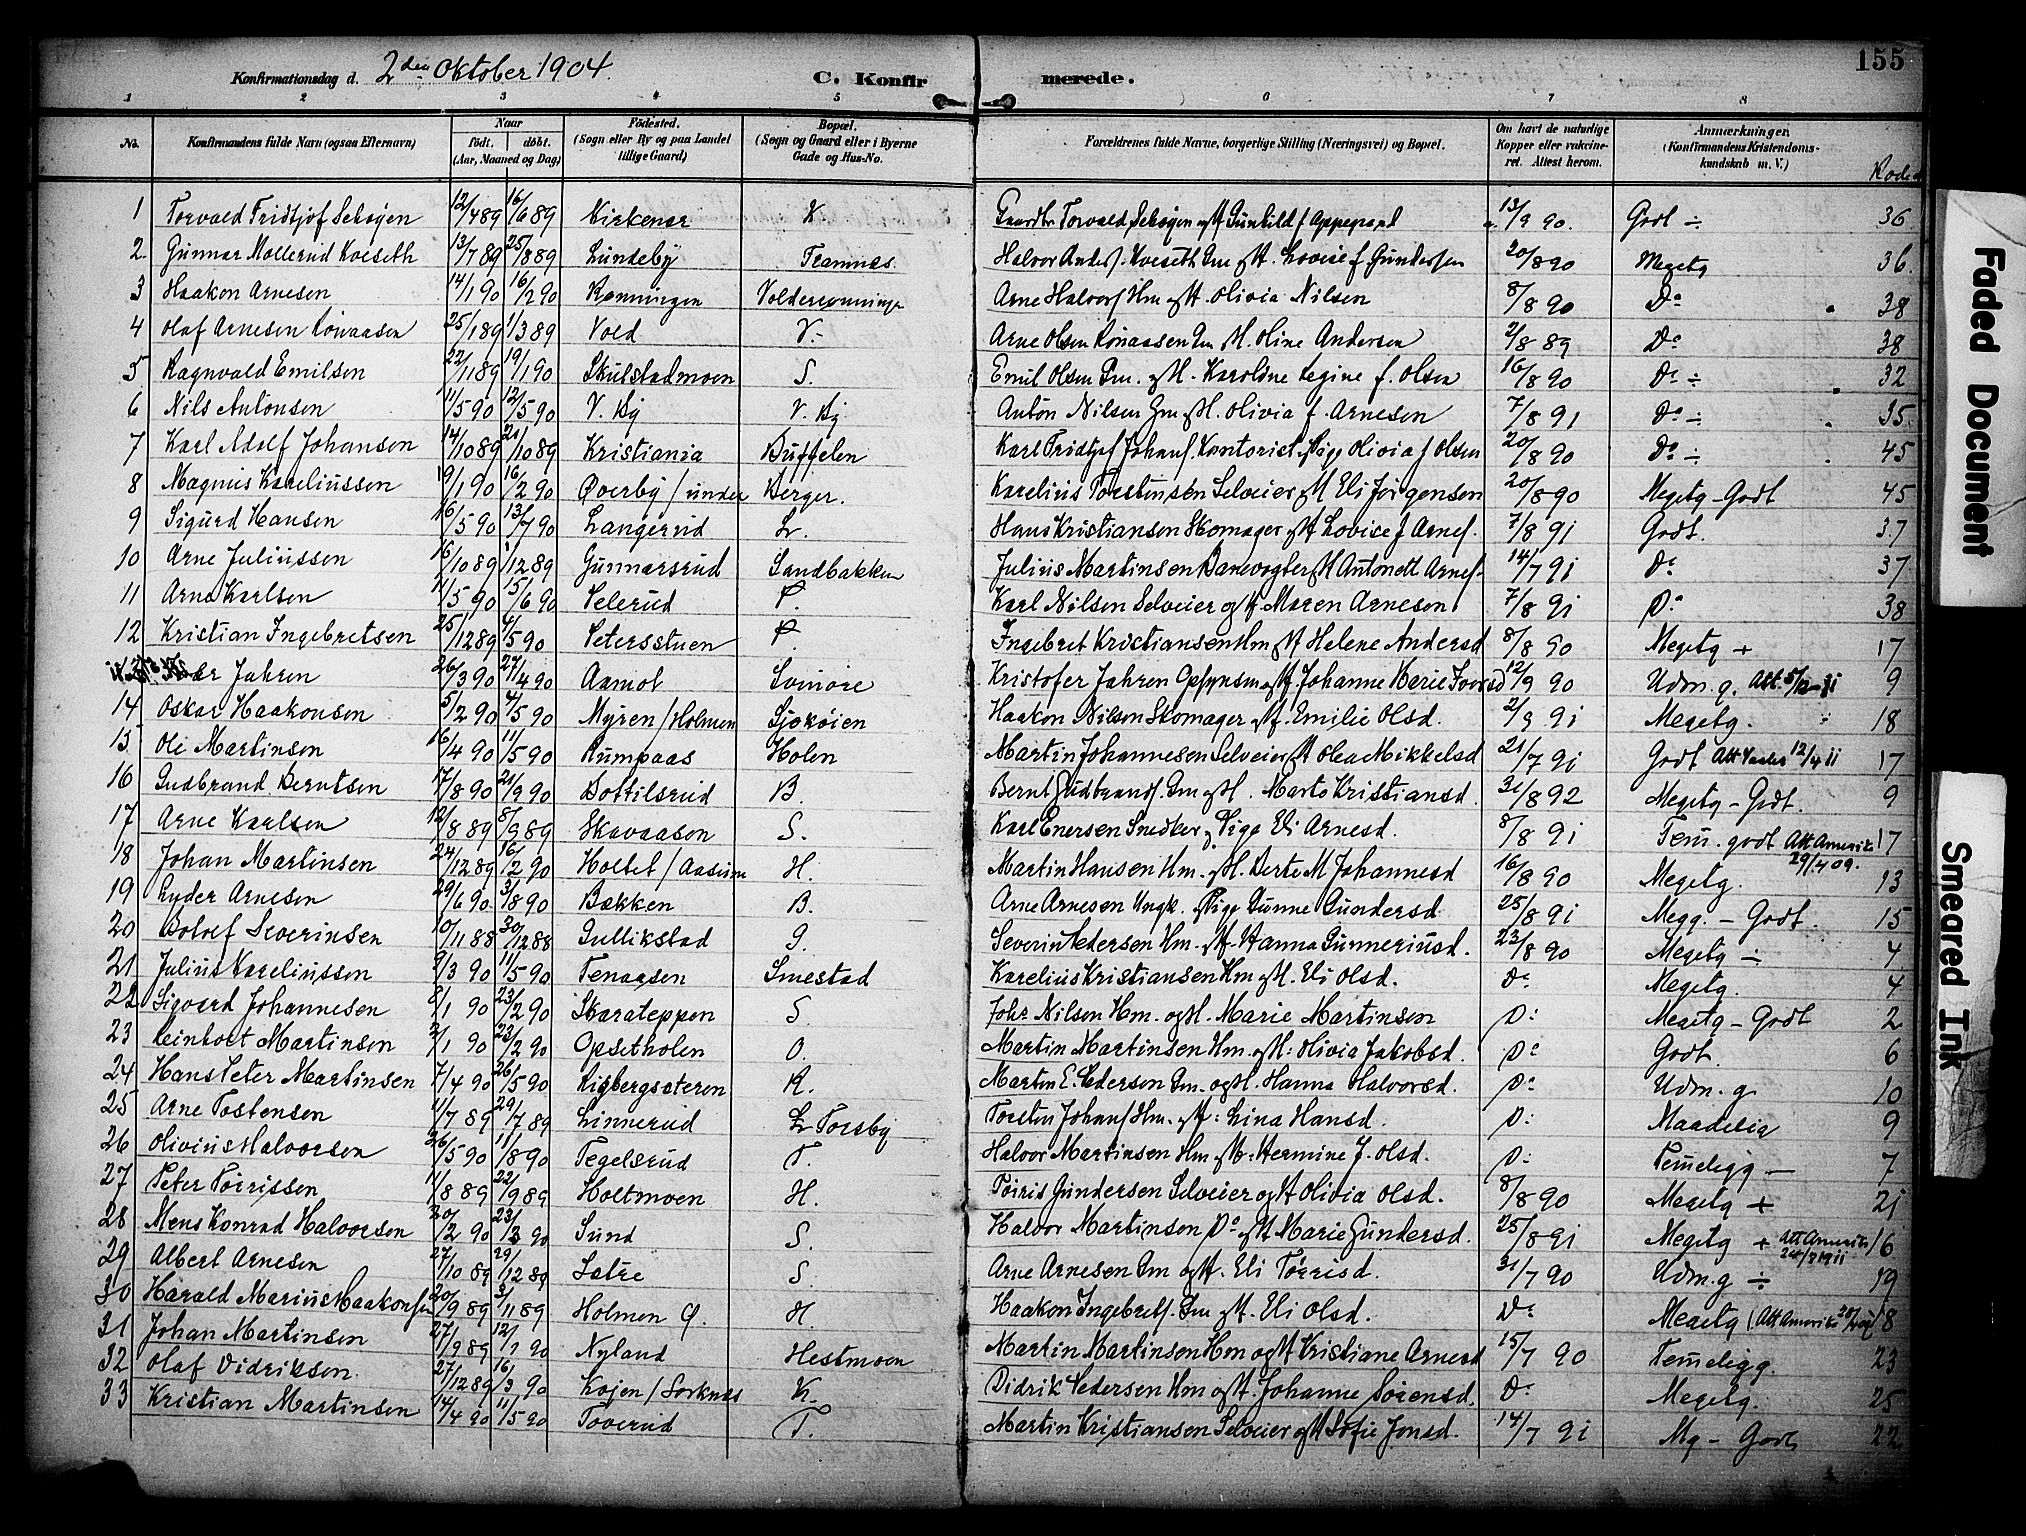 155
Konfirmationsdag d. 2den Oktober 1904.
C. Konfirmerede.
1 2 3 4 5 6 7 8
No. Konfirmandens fulde Navn (ogsaa Efternavn) Naar født. døbt. (Aar, Maaned og Dag) Fødested. (Sogn eller By og paa Landet tillige Gaard) Bopæl. (Sogn og Gaard eller i Byerne Gade og Hus-No. Forældrenes fulde Navne, borgerlige Stilling (Næringsvei) og Bopæl. Om havt de naturlige Kopper eller vaccineret. Attest herom. Anmærkninger. (Konfirmandens Kristendomskundskab m. V.)
1 Torvald Fridtjof 12/4 89 16/6 89 Kirkenær K Torvald 13/9 90. Godt ÷ 36
2. Gunnar Mollerud Kveseth 13/7 89 25/8 89 Lundeby Framnæs. Halvor Kveseth Gm og H. Lovise f. Gundersen 20/8 90 Megetg 36.
3 Haakon Arnesen 14/1 90 16/2 90 Rønningen Arne Halvors. Hm og H. Olivia Nilsen 8/8 90 Do 38
4 Olaf Arnesen 25/1 89 1/3 89 Vold V.- Arne Olsen Gm H. Oline Andersen 2/8 89 Do 38
5 Ragnvald Emilsen 22/11 89 19/1 90 Skulstadmoen S. Emil Olsen Gm. og H. Karoline Regine f. Olsen 16/8 90 Do ÷ 32
6 Nils Antonsen 11/5 90 12/5 90 V. By V. By. Anton Nilsen Gm og H. Olivia f. Arnesen 7/8 91 Do ÷ 35.
7 Karl Adolf Johansen 14/10 89 21/10 89 Kristiania Bøffelen Karl Fridtjof Johans. Kontorist og Pige Olivia f Olsen 20/8 90 Do ÷ 45
8 Magnus Kareliussen 19/1 90 16/2 90 Overby / under Berger. Karelius Torstensen Selveier og H Eli Jørgensen 20/8 90 Megetg - Godt 45
9 Sigurd Hansen 16/5 90 13/7 90 Langerud L. Hans Kristiansen Skomager og H Lovise f Arnes. 7/8 91 Godt. 37
10 Arne Juliussen 16/10 89 1/12 89 Gunnarsrud Sandbakken Julius Martinsen Banevogter og H Antonett Arnes. 14/7 91 Do 37
11 Arne Karlsen 11/5 90 15/6 90 Pelerud P. Karl Nilsen Selveier og H. Maren Arnesen 7/8 91 Do 38
12 Kristian Ingebretsen 25/12 89 4/5 90 Petersstuen P. Ingebret Kristiansen Hm og H Helene Andersd 8/8 90 Megetg + 17
Jahren 26/3 90 27/4 90 Aamot Kristofer Jahren Opsynsm og H. Johanne Marie 12/9 90 Udm. g. Att. 9
14 Oskar Haakonsen 5/2 90 4/5 90 Myren / Holmen Sjøkøien Haakon Nilsen Skomager og H. Emilie Olsd. 2/9 91 Megetg. 18
15 Ole Martinsen 16/4 90 11/5 90 Rumpaas Holen Martin Johannesen Selveier og H Olea Mikkelsd 21/7 91 Godt Att 12/4 11 17
16 Gudbrand Berntsen 17/8 90 21/9 90 Bottilsrud B. Bernt Gudbrands. Gm og H. Marte Kristiansd. 31/8 92 Megetg - Godt. 9
17 Arne Karlsen 12/8 89 8/9 89 Skavaasen S. Karl Enersen Snedker og Pige Eli Arnesd. 8/8 91 Tem. godt Att Amerika 29/4 09. 17
18 Johan Martinsen 24/12 89 16/2 90 Holtet / Aasum H. Martin Hansen Hm. og H. Berte M Johannesd 16/8 90 Megetg. 13
19 Ryder Arnesen 29/6 90 3/8 90 Bakken B. Arne Arnesen Ungk. og Pige Gunne Gundersd. 25/8 91 Megg. - Godt. 15
20 Botolf Severinsen 10/11 88 30/12 88 Gullikstad G. Severin Pedersen Hm. og H. Hanna Gunneriusd. 23/8 90 Megetg ÷ 4
21 Julius Kareliussen 9/3 90 11/5 90 Tenaasen Smestad Karelius Kristiansen Hm og H. Eli Olsd. Do Megetg. 4
22 Sigvard Johannesen 8/1 90 23/2 90 Skarateppen S. Johs Nilsen Hm. og H. Marie Martinsen Do Megetg - Godt 2
23 Reinholt Martinsen 2/1 90 23/2 90 Opsetholen O. Martin Martinsen Hm. og H. Olivia Jakobsd. Do Godt. 6
24 Hans Peter Martinsen 7/4 90 26/5 90 Rigbergsæteren R. Martin E. Pederson Gm. og H. Hanna Halvorsd. Do Udm. g 10
25 Arne Tostensen 11/7 89 29/7 89 Linnerud L Torsby Torsten Johans Hm. og H: Lina Hansd. Do Maadelig 9
26 Olivius Halvorsen 26/5 90 11/8 90 Tegelsrud T. Halvor Martinsen Hm og H: Hermine J. Olsd. Do Temeligg - 7
27 Peter Tørrissen 1/8 89 22/9 89 Holtmoen H. Tøiris Gundersen Selveier og H Olivia Olsd. 8/8 90 Megetg + 21
28 Mens Konrad Halvorsen 20/2 90 23/3 90 Sund S. Halvor Martinsen Do og H Marie Gundersd. 25/8 91 Megetg + Att Amerika 16
29 Albert Arnesen 27/10 89 29/12 89 Sætre S. Arne Arnesen Gm og H. Eli Tørrisd. 31/7 90 Udm. g ÷ 19
30 Harald Marius Haakonsen 20/9 89 3/11 89 Holmen Ø. H. Haakon Ingebrets. Gm og H. Eli Olsd. Do Megetg (Att Amerika 18
31 Johan Martinsen 27/9 89 12/1 90 Nyland Hestmoen Martin Martinsen Hm og H Kristiane Arnesd 15/7 90 Temeligg. 23
32 Olaf Didriksen. 27/12 89 16/3 90 Kojen / Sorknæs K. Didrik Pedersen Hm og H. Johanne Sørensd. Do Megetg. 25
33 Kristian Martinsen 14/4 90 11/5 90 Toverud T. Martin Kristiansen Selveier og H Sofie Jonsd. 14/7 91 Mg - Godt 22
Faded Document
Smeared Ink